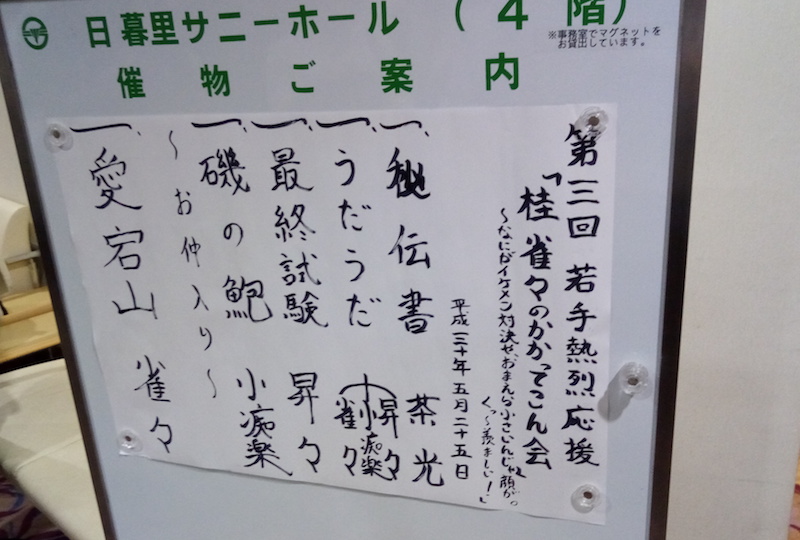 日暮里サニーホール（４階）
※事務室でマグネットを
お貸出しています。
催物ご案内
第三回 若手熱烈応援
「桂雀々のかかってこん会
～なにがイケメン対決や、おまえら小さいんじゃ顔がっ
くっ～羨ましい！」
平成三十年五月二十五日
一、秘伝書 茶光
一、うだうだ 昇々 小痴楽 雀々
一、最終試験 昇々
一、磯の鮑 小痴楽
～お仲入り～
一、愛宕山 雀々